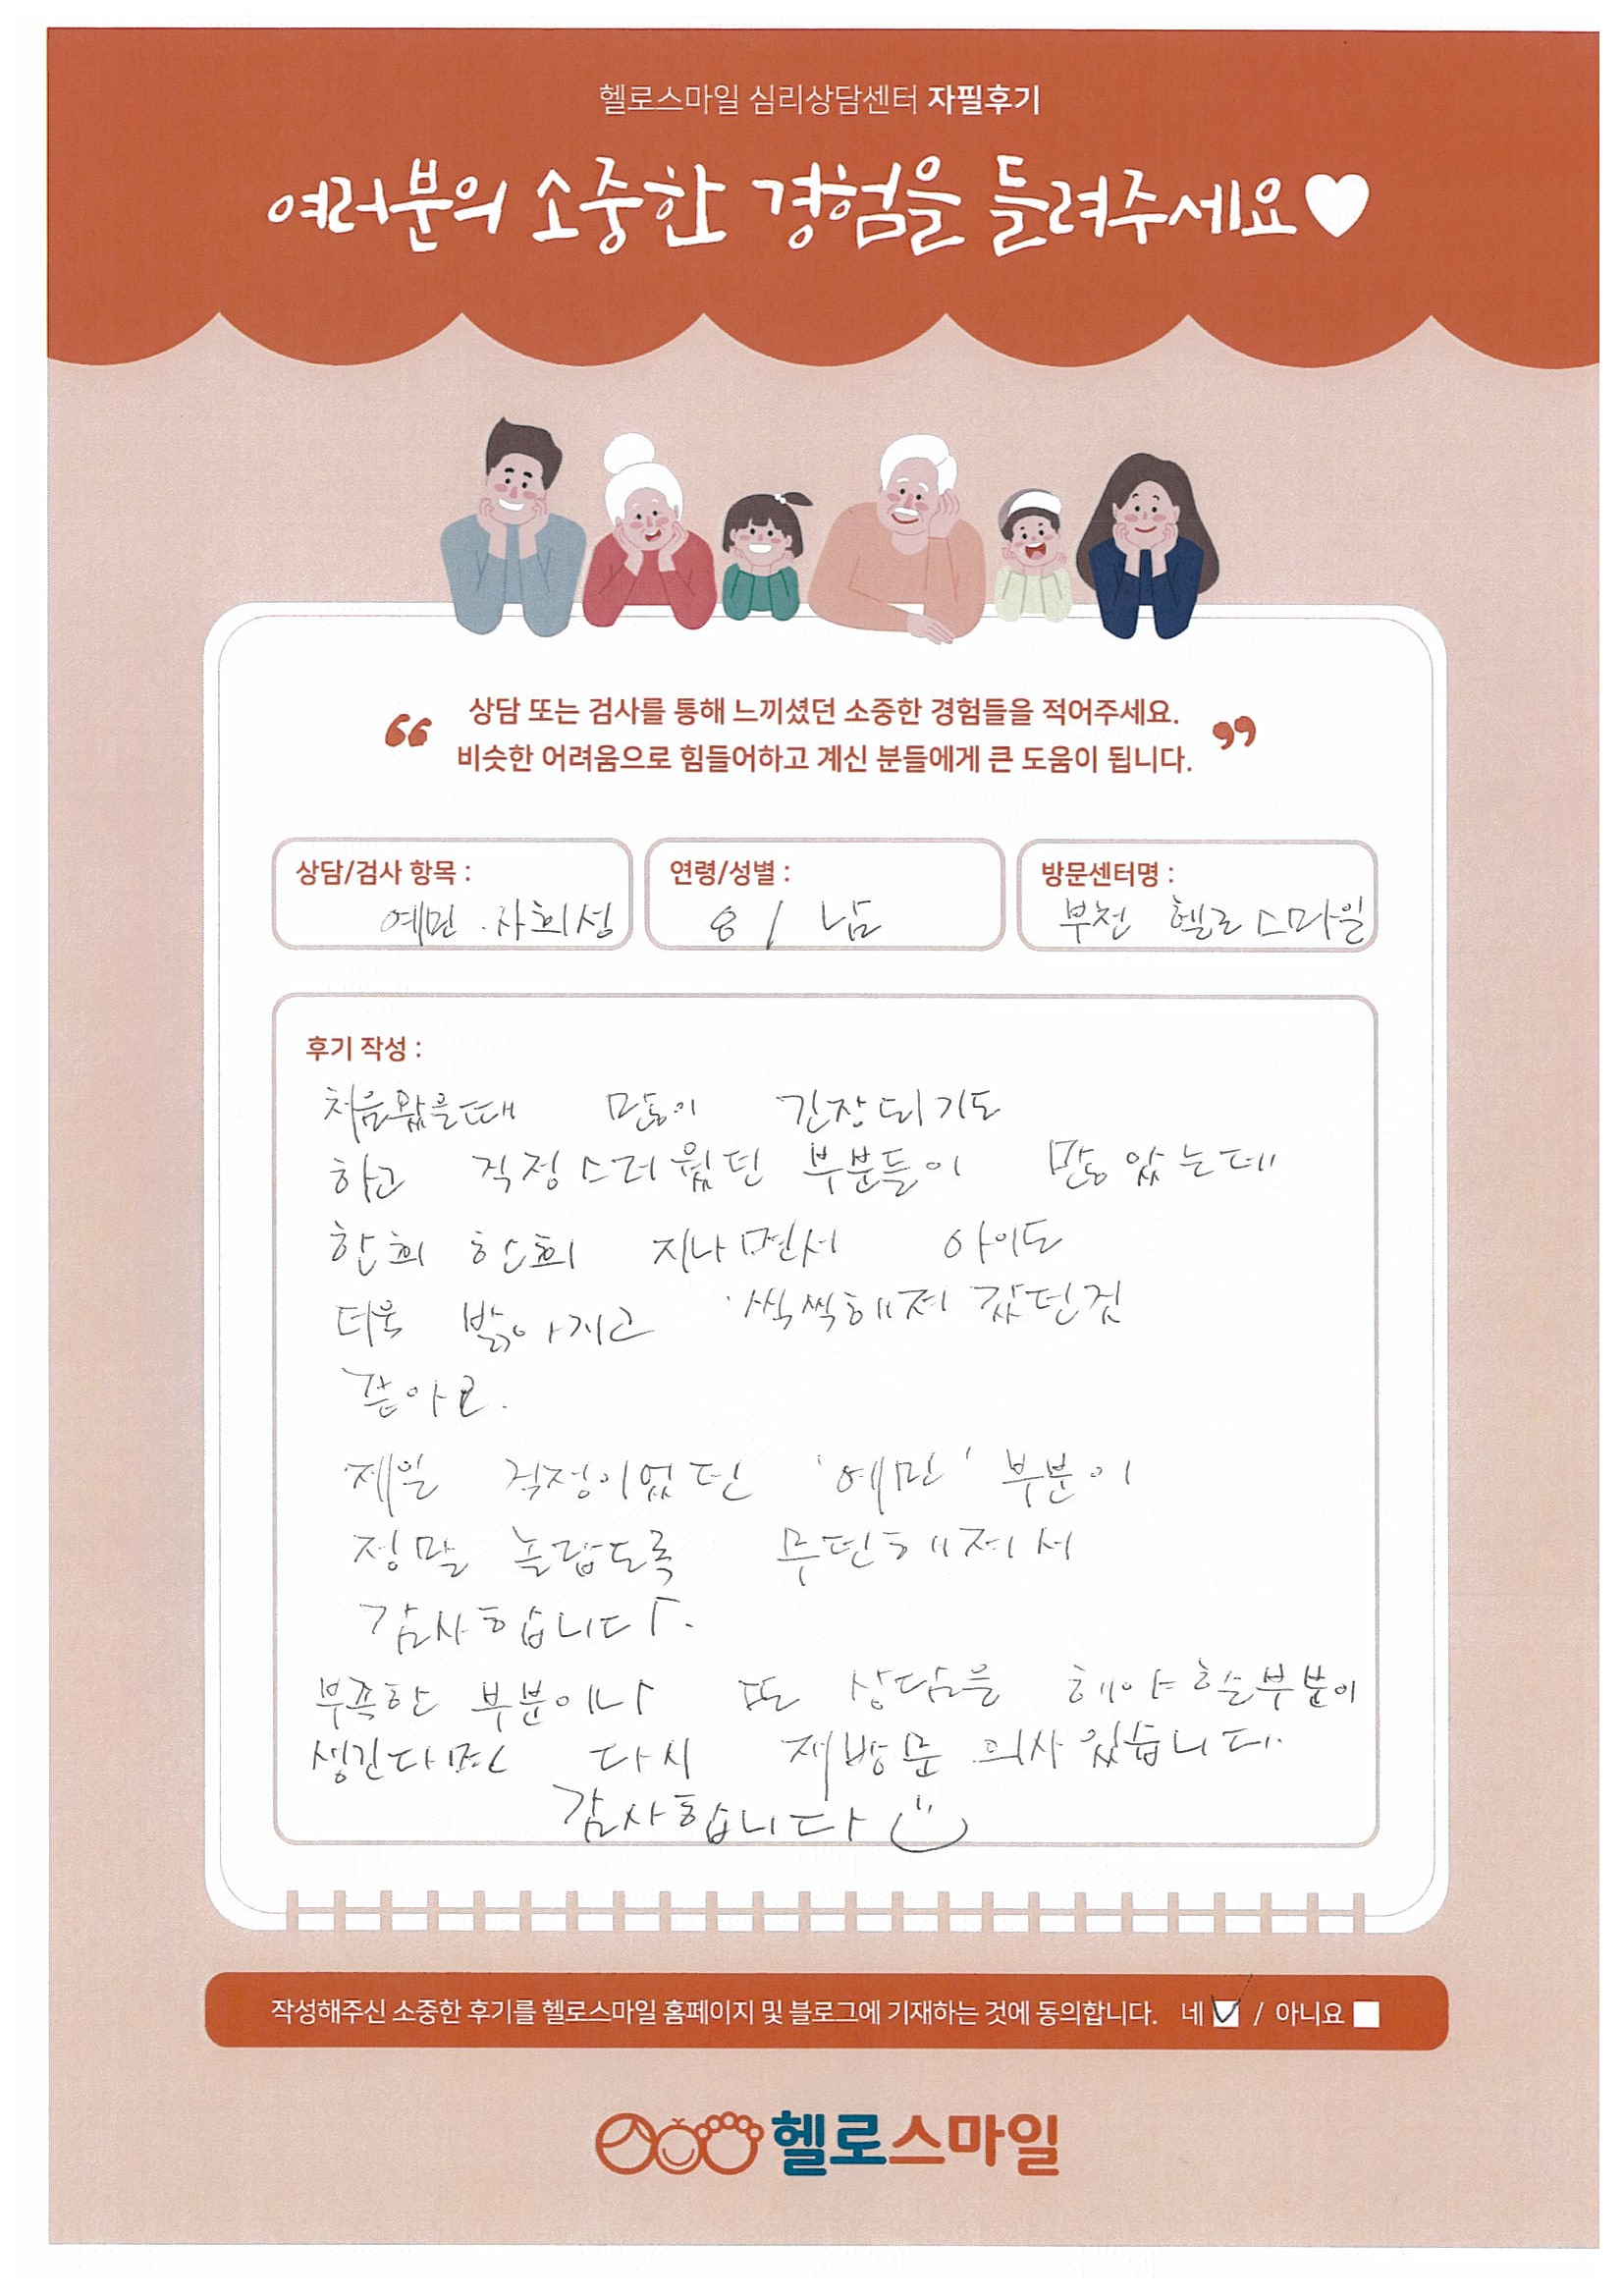 헬로스마일 심리상담센터 자필후기
여러분의 소중한 경험을 들려주세요♥
“ 상담 또는 검사를 통해 느끼셨던 소중한 경험들을 적어주세요.
비슷한 어려움으로 힘들어하고 계신 분들에게 큰 도움이 됩니다. ”
상담/검사 항목 :
예민 . 사회성
연령/성별 :
8 / 남
방문센터명 :
부천 헬로스마일
후기 작성 :
처음왔을때 많이 긴장되기도
하고 걱정스러웠던 부분들이 많았는데
한회 한회 지나면서 아이도
더욱 밝아지고 씩씩해져 갔던것
같아요.
제일 걱정이었던 '예민' 부분이
정말 놀랍도록 무던해져서
감사합니다.
부족한 부분이나 또 상담을 해야할부분이
생긴다면 다시 재방문 의사있습니다.
감사합니다
작성해주신 소중한 후기를 헬로스마일 홈페이지 및 블로그에 기재하는 것에 동의합니다. 네 / 아니요
헬로스마일